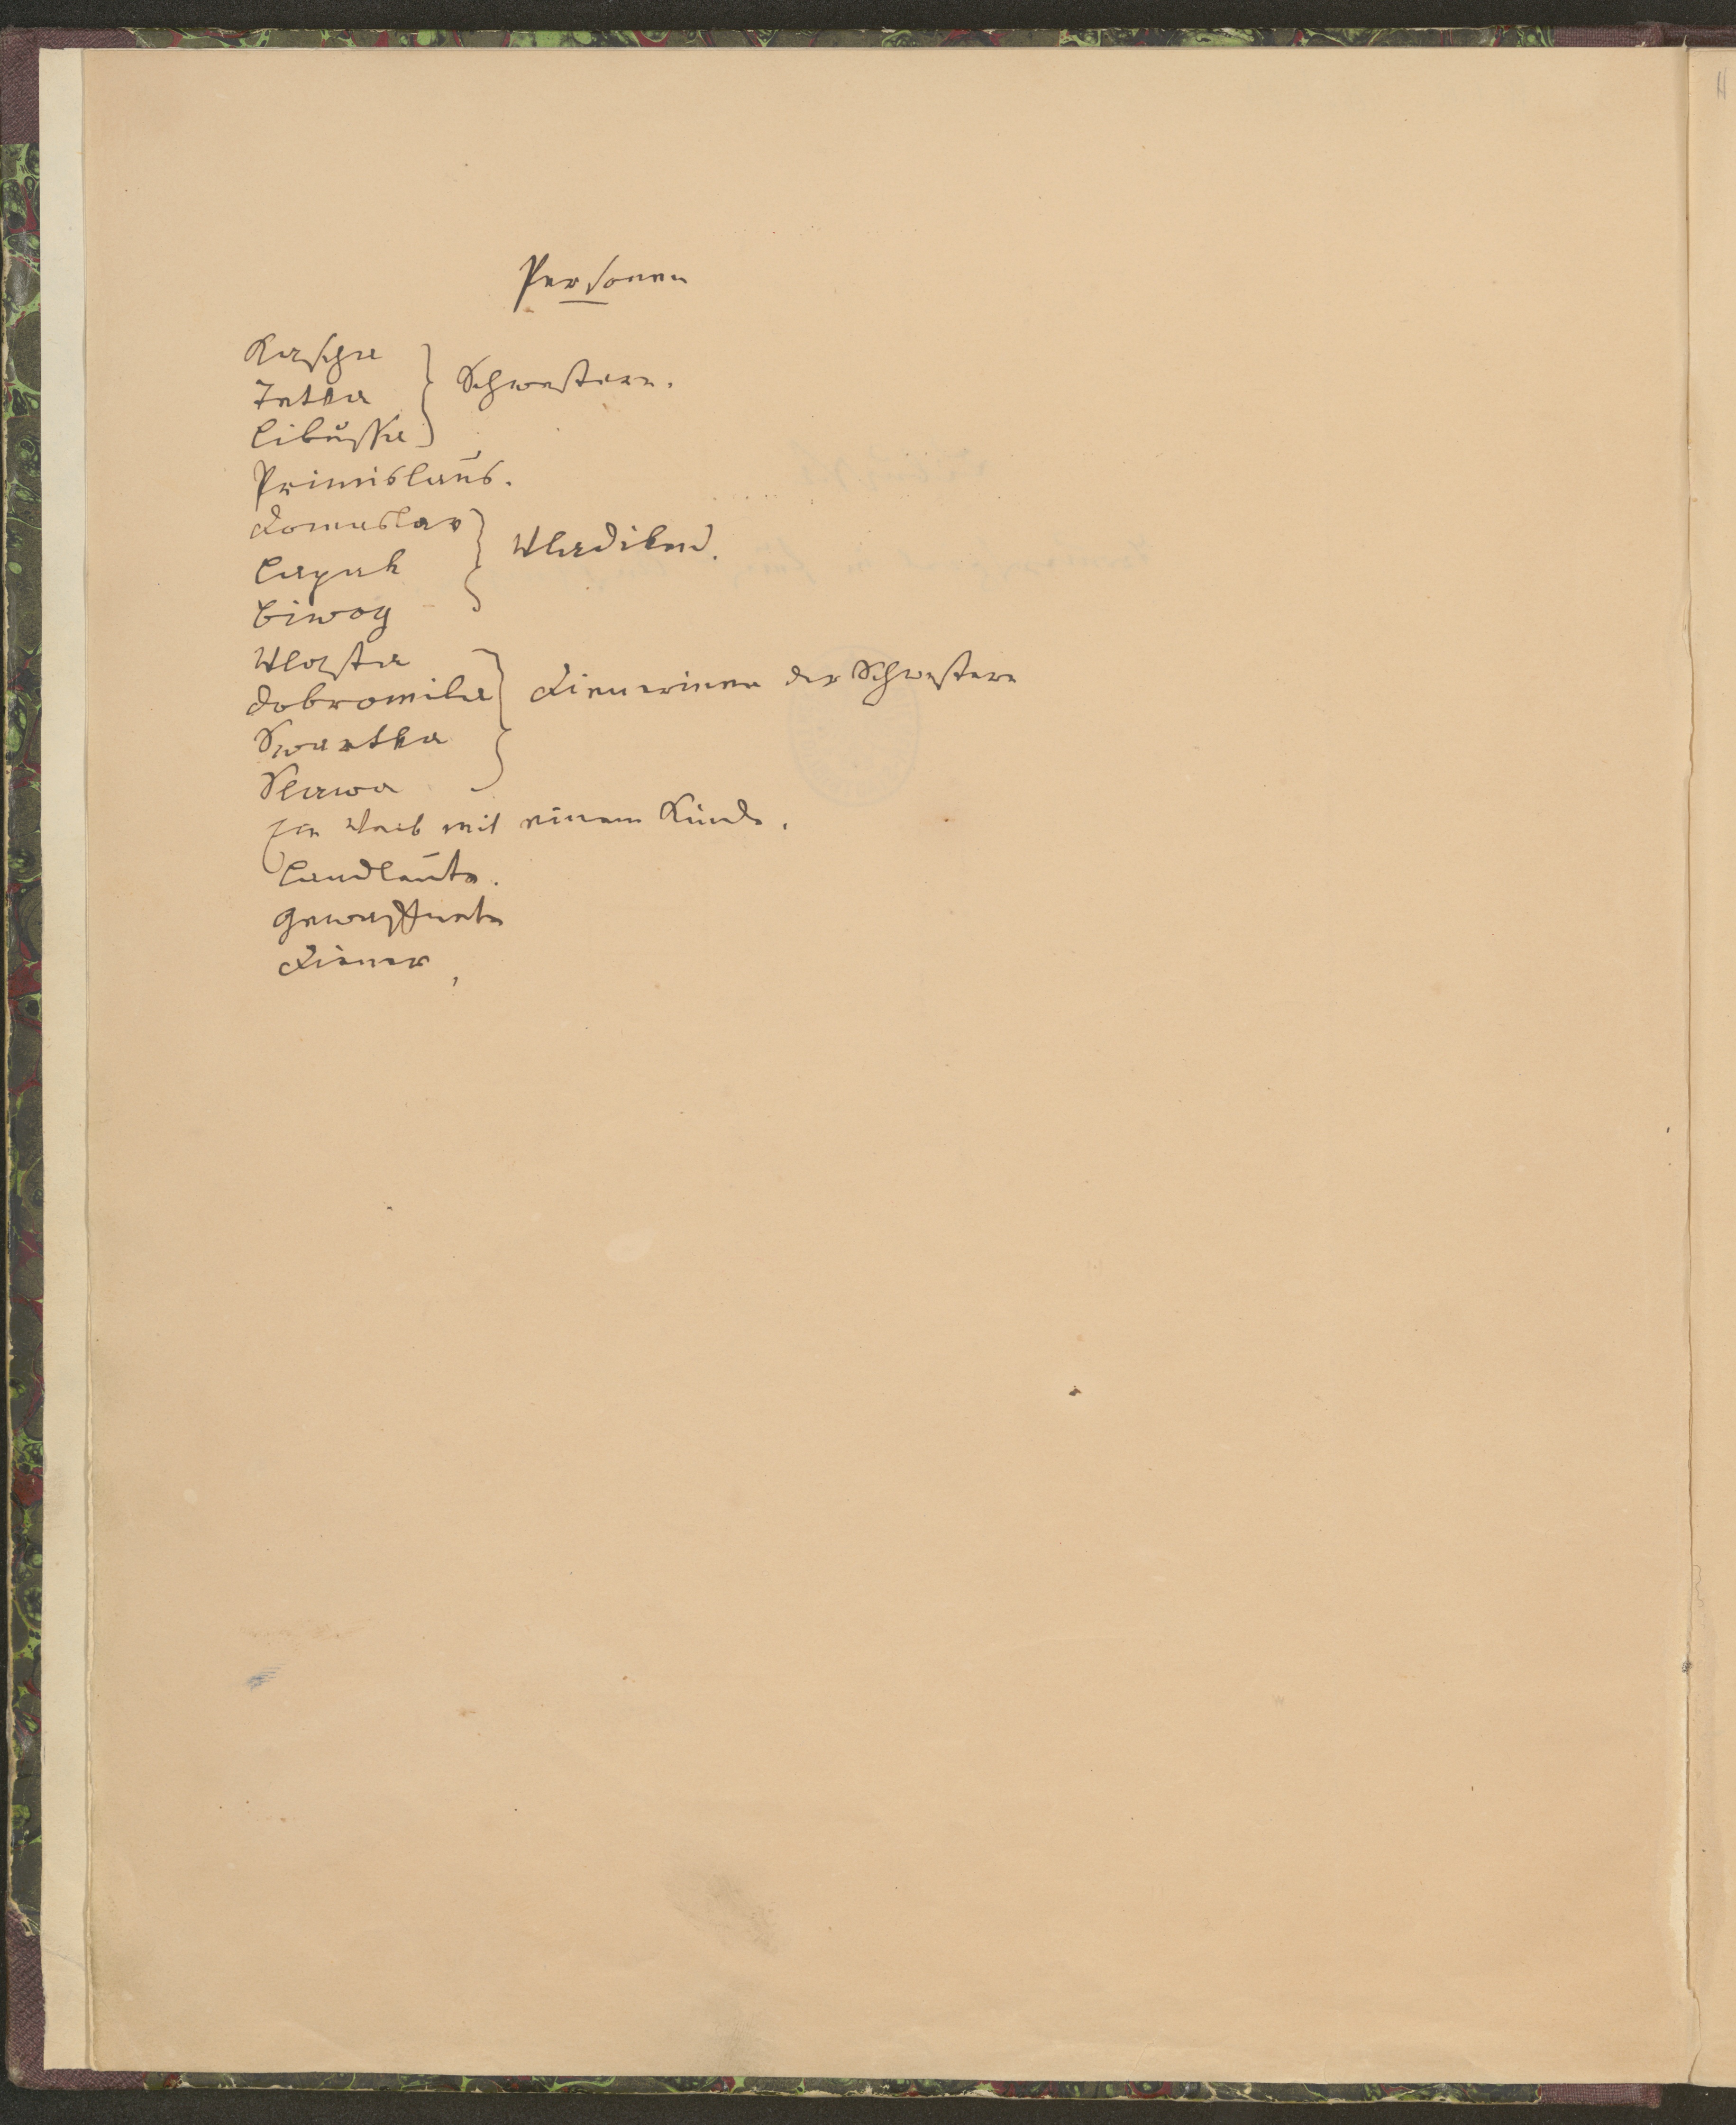 Personen
Kascha
Tetka } Schwestern.
Libussa
Primislaus.
Domaslav
Lapak } Wladiken.
Biwog
Wlasta
Dobromila } Dienerinen der Schwestern
Swartka
Slawa
Ein Weib mit einem Kinde.
Landleute.
Gewaffnete
Diener.